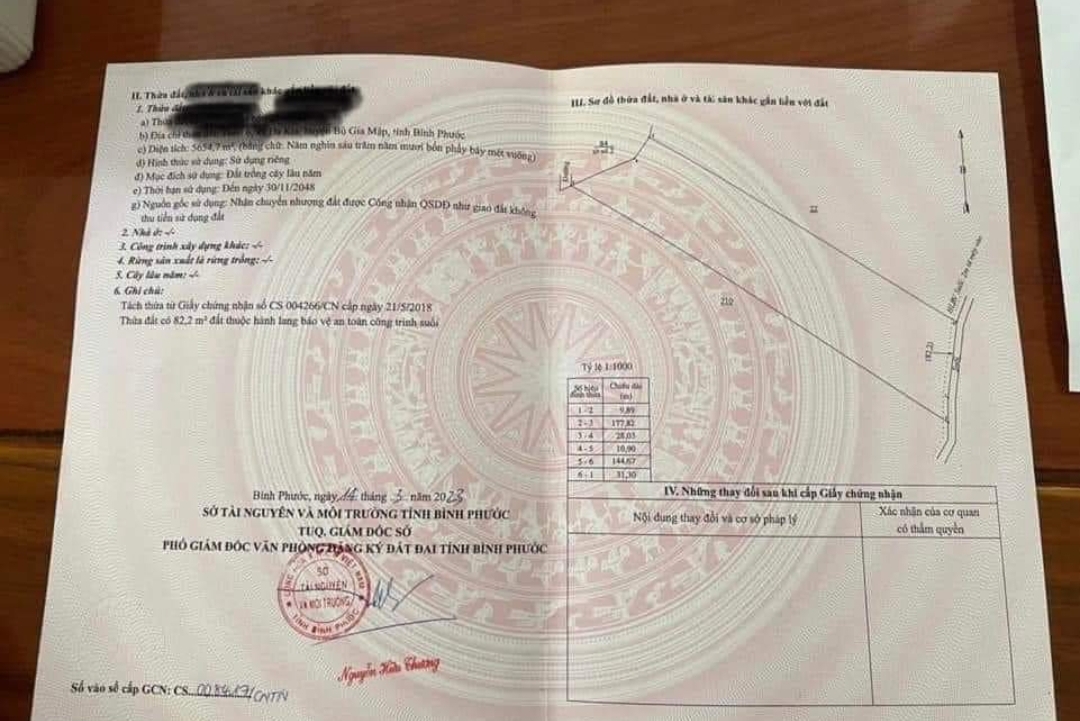 II. Thửa đất, nhà ở và tài sản khác gắn liền với đất
1. Thửa đất
a) Thửa
b) Địa chỉ Bù Gia Mập, tỉnh Bình Phước
c) Diện tích: 5654,7 m², (bằng chữ: Năm nghìn sáu trăm năm mươi bốn phẩy bảy mét vuông)
d) Hình thức sử dụng: Sử dụng riêng
đ) Mục đích sử dụng: Đất trồng cây lâu năm
e) Thời hạn sử dụng: Đến ngày 30/11/2048
g) Nguồn gốc sử dụng: Nhận chuyển nhượng đất được Công nhận QSDĐ như giao đất không
thu tiền sử dụng đất
2. Nhà ở: -/-
3. Công trình xây dựng khác: -/-
4. Rừng sản xuất là rừng trồng: -/-
5. Cây lâu năm: -/-
6. Ghi chú:
Tách thửa từ Giấy chứng nhận số CS 004266/CN cấp ngày 21/5/2018
Thửa đất có 82,2 m² đất thuộc hành lang bảo vệ an toàn công trình suối
Bình Phước, ngày 14 tháng 3 năm 2023
SỞ TÀI NGUYÊN VÀ MÔI TRƯỜNG TỈNH BÌNH PHƯỚC
TUQ. GIÁM ĐỐC SỞ
PHÓ GIÁM ĐỐC VĂN PHÒNG ĐĂNG KÝ ĐẤT ĐAI TỈNH BÌNH PHƯỚC
SỞ
TÀI NGUYÊN
VÀ MÔI TRƯỜNG
TỈNH BÌNH PHƯỚC
Nguyễn Hữu Thương
Số vào sổ cấp GCN: CS
III. Sơ đồ thửa đất, nhà ở và tài sản khác gắn liền với đất
84
Đường
B
22
210
(82.2)
Suối
Tỷ lệ 1:1000
Số hiệu đỉnh thửa Chiều dài (m)
1-2 9,89
2-3 177,82
3-4 28,03
4-5 10,90
5-6 144,67
6-1 31,30
IV. Những thay đổi sau khi cấp Giấy chứng nhận
Nội dung thay đổi và cơ sở pháp lý
Xác nhận của cơ quan
có thẩm quyền